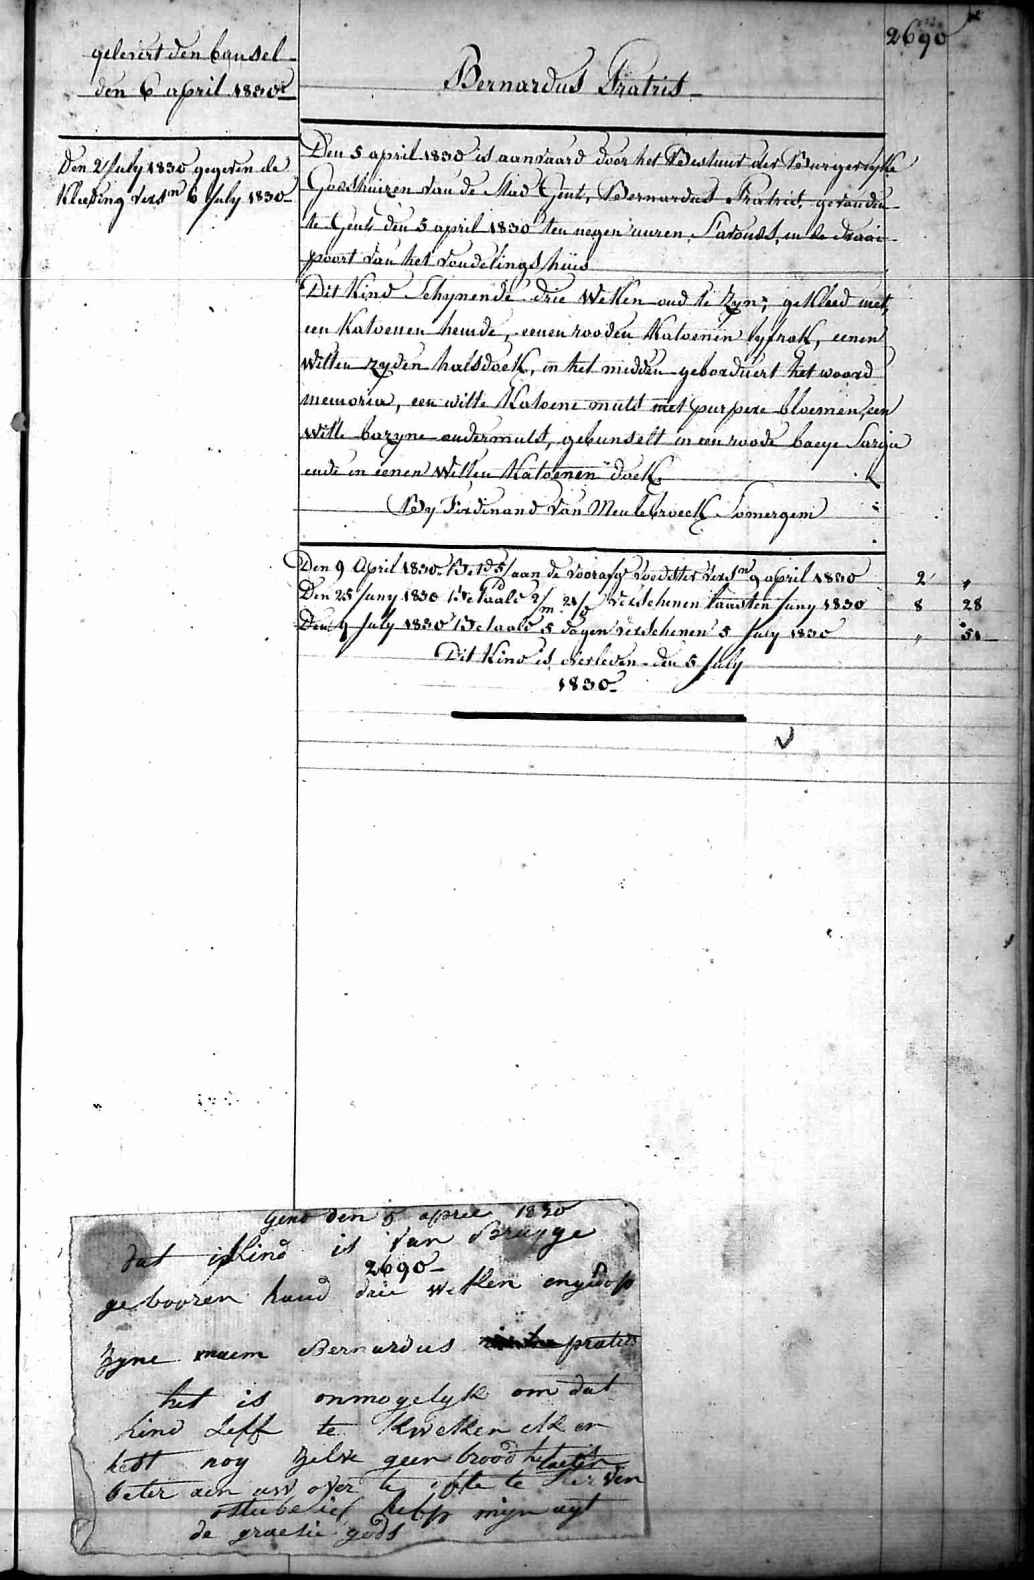 2690
gelevert den bansel
den 6 april 1830
Bernardus Fratris
Den 2 July 1830 gegeven de
Kleeding vers.n 6 July 1830
Den 5 april 1830 is aanvaard door het Bestuur der Burgerlyke
Godshuizen van de Stad Gent, Bernardus Fratris, gevonden
te Gent den 5 april 1830 ten negen uuren S'avonds, in de draai
poort van het vondelings huis
Dit Kind Schynende drie Weken oud te zyn, gekleed met
een Katoenen hemde, eenen rooden Katoenen lyfrok, eenen
Witten zyden halsdoek, in het midden geborduert het woord
memoria, een witte Katoene muts met purpere bloemen, een
Witte bazyne ondermuts, gebunselt in een roode baeye Sargie
ende in eenen Witten Katoenen doek
By Ferdinand Van Meulebroeck Somergem
Den 9 April 1830 aan de voorafg voedster vers.n 9 april 1830 2 "
Den 25 Juny 1830 Betaald 2/m 21/d verschenen laasten Juny 1830 8 28
Den 9 July 1830 Betaald 5 dagen verschenen 5 July 1830 " 51
Dit Kind is overleden den 5 July
1830
Gend den 5 april 1830
dat kind is van Brugge
2690
gebooren haud drie weken
zyne naem Bernardus pratris
het is onmogelyk om dat
kind self te kweken
hebt nog zelve geen brood
beter aen uw over te te sterven
mijn
de graetie gods